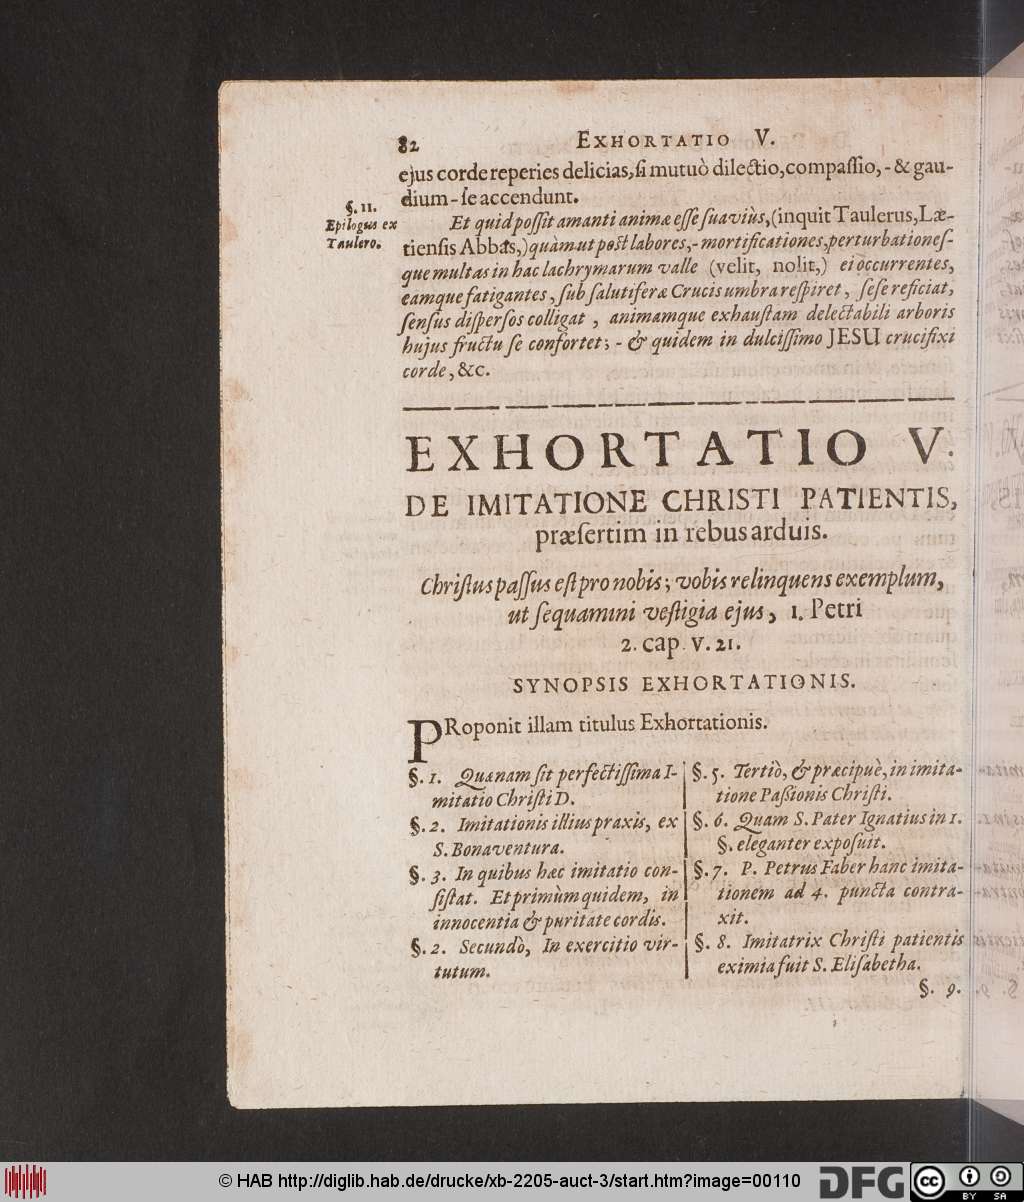 82 EXHORTATIO V.
ejus corde reperies delicias, si mutuò dilectio, compassio, - & gau-
dium - se accendunt.
§. 11.
Epilogus ex
Taulero.
Et quid possit amanti animæ esse suaviùs, (inquit Taulerus, Læ-
tiensis Abbas,) quàm ut post labores, - mortificationes, perturbationes-
que multas in hac lachrymarum valle (velit, nolit,) ei occurrentes,
eamque fatigantes, sub salutiferæ Crucis umbra respiret, sese reficiat,
sensus dispersos colligat, animamque exhaustam delectabili arboris
hujus fructu se confortet; - & quidem in dulcissimo JESU crucifixi
corde, &c.
EXHORTATIO V.
DE IMITATIONE CHRISTI PATIENTIS,
præsertim in rebus arduis.
Christus passus est pro nobis; vobis relinquens exemplum,
ut sequamini vestigia ejus, 1. Petri
2. cap. v. 21.
SYNOPSIS EXHORTATIONIS.
PRoponit illam titulus Exhortationis.
§. 1. Quænam sit perfectissima I-
mitatio Christi D.
§. 2. Imitationis illius praxis, ex
S. Bonaventura.
§. 3. In quibus hæc imitatio con-
sistat. Et primùm quidem, in
innocentia & puritate cordis.
§. 2. Secundò, In exercitio vir-
tutum.
§. 5. Tertiò, & præcipuè, in imita-
tione Passionis Christi.
§. 6. Quam S. Pater Ignatius in 1.
§. eleganter exposuit.
§. 7. P. Petrus Faber hanc imita-
tionem ad 4. puncta contra-
xit.
§. 8. Imitatrix Christi patientis
eximia fuit S. Elisabetha.
§. 9.
© HAB http://diglib.hab.de/drucke/xb-2205-auct-3/start.htm?image=00110
DFG
cc
BY SA